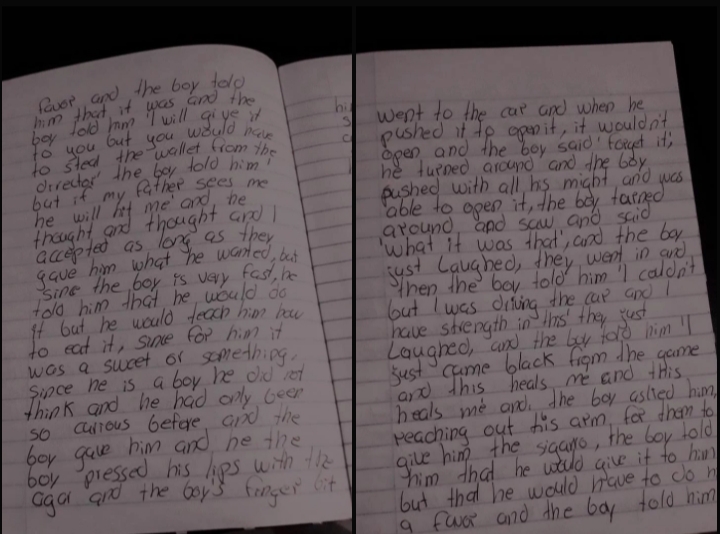 favor and the boy told
him that it was and the
boy told him 'I will give it
to you but you would have
to steal the wallet from the
director' the boy told him '
but if my father sees me
he will hit me' and he
thought and thought and I
accepted as long as they
gave him what he wanted, but
since the boy is very fast, he
told him that he would do
it but he would teach him how
to eat it, since for him it
was a sweet or something.
Since he is a boy he did not
think and he had only been
so curious before and the
boy gave him and he the
boy pressed his lips with the
agar and the boy's finger bit
hi
s
went to the car and when he
pushed it to open it, it wouldn't
open and the boy said 'forget it',
he turned around and the boy
pushed with all his might and was
able to open it, the boy turned
around and saw and said
'what it was that', and the boy
just laughed, they went in and
then the boy told him 'I couldn't
but I was driving the car and I
have strength in this' they just
Laughed, and the boy told him 'I
just came black from the game
and this heals me and this
heals me and, the boy asked him,
reaching out his arm for them to
give him the sigarro, the boy told
him that he would give it to him
but that he would have to do h
a favor and the boy told him